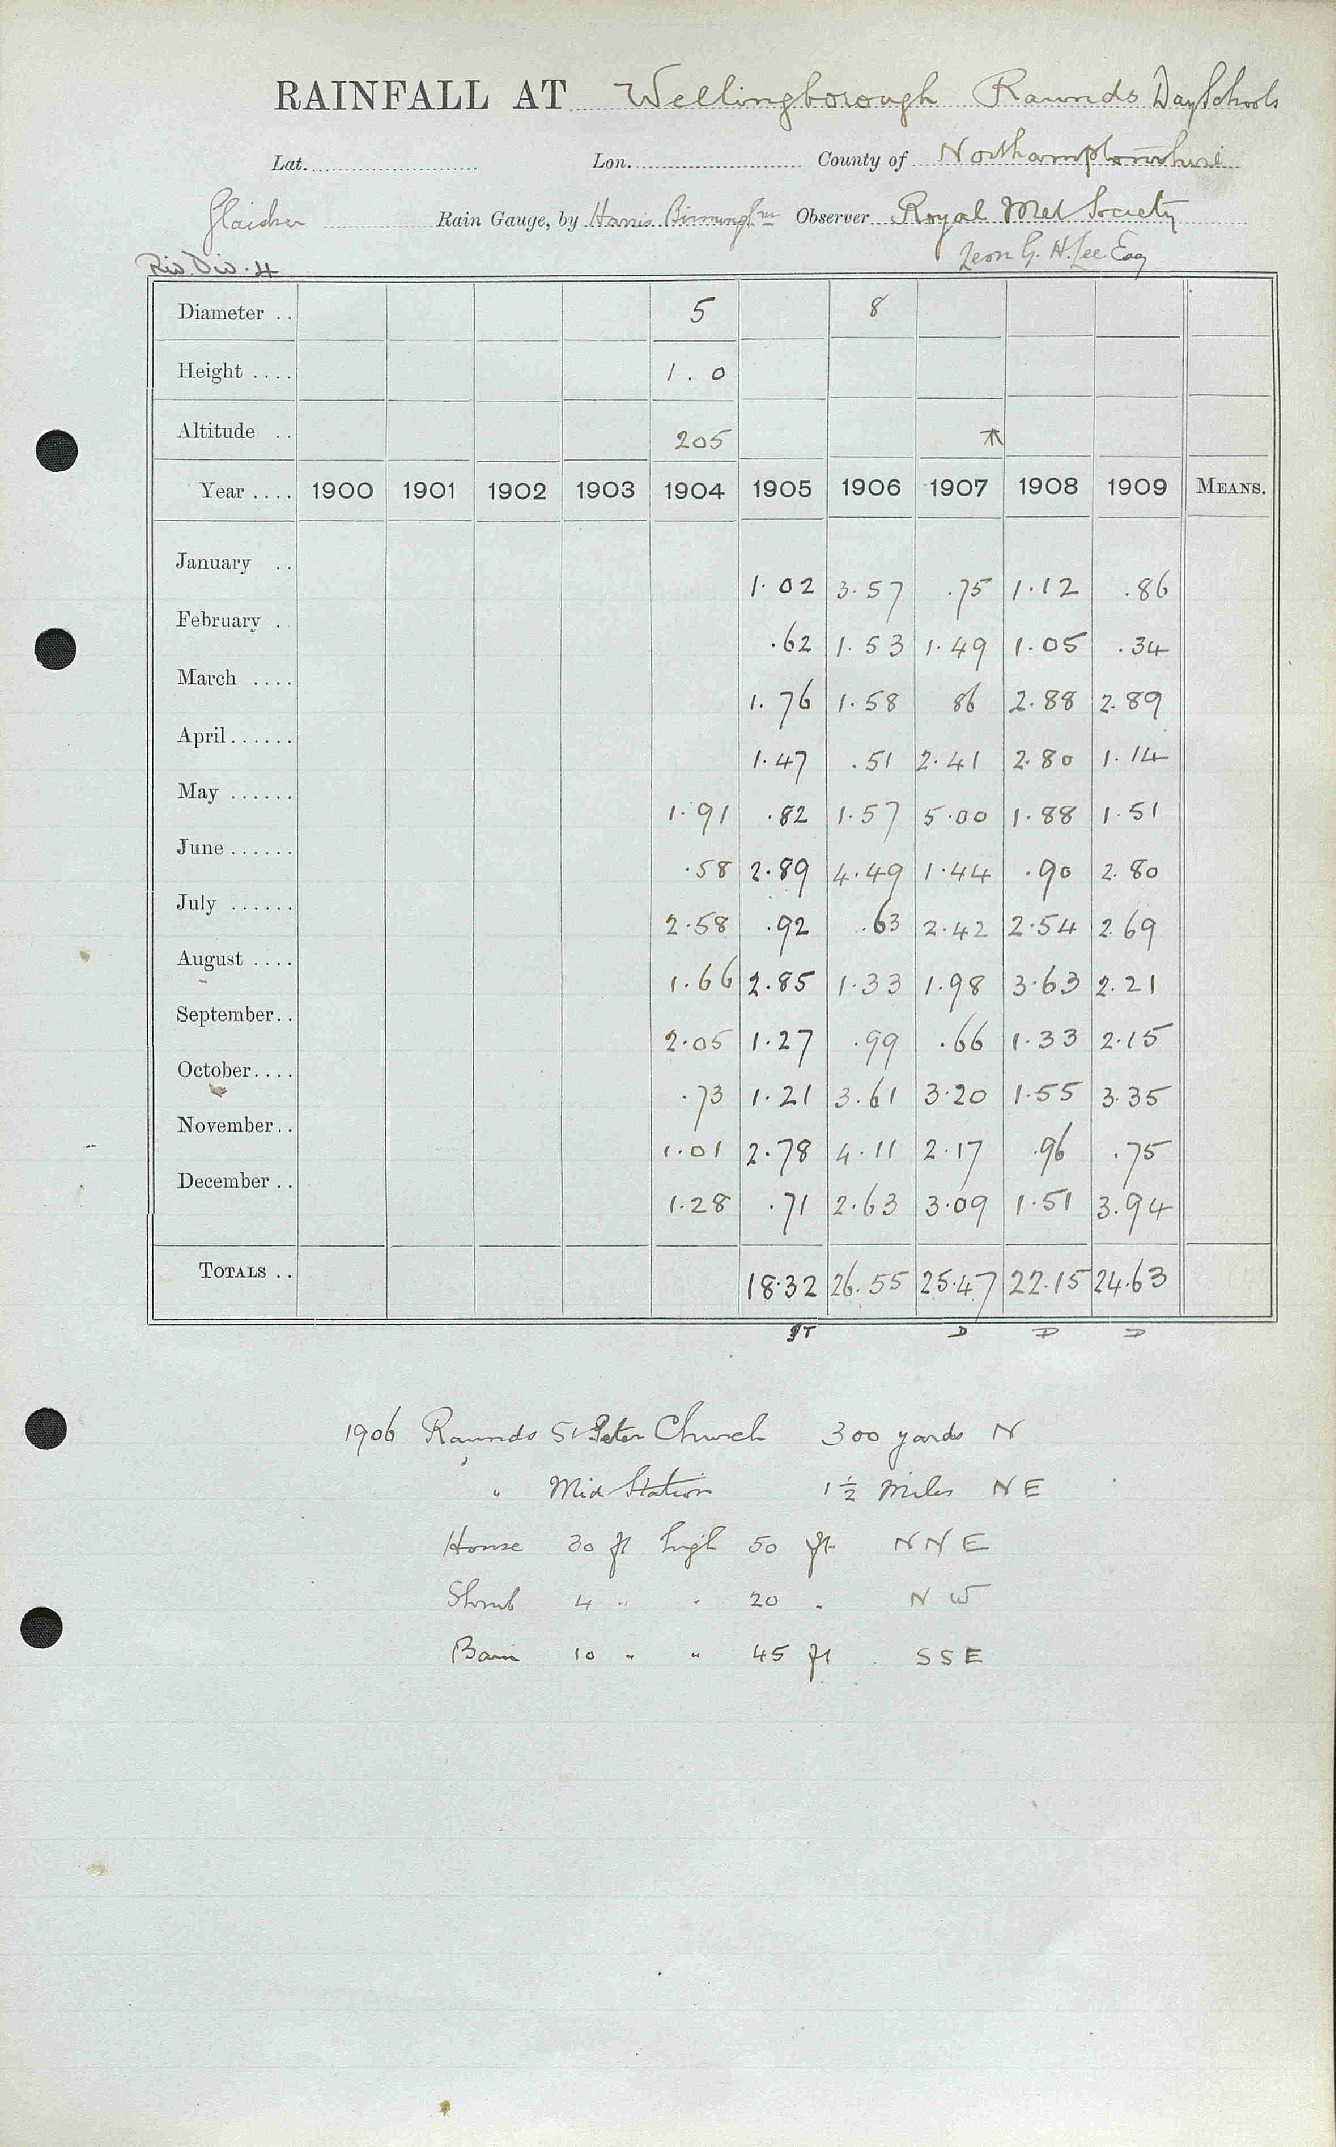 RAINFALL AT Wellingborough Raunds Day Schools
Lat. Lon. County of Northamptonshire
Glaisher Rain Gauge, by Harris Birmingh'm Observer Royal Met Society
G. H. Lee Esq
Riv. Div. 4
Diameter .. 5 8
Height .... 1.0
Altitude .. 205
Year .... 1900 1901 1902 1903 1904 1905 1906 1907 1908 1909 MEANS.
January .. 1.02 3.57 .75 1.12 .86
February . .62 1.53 1.49 1.05 .34
March .... 1.76 1.58 86 2.88 2.89
April...... 1.47 .51 2.41 2.80 1.14
May ...... 1.91 .82 1.57 5.00 1.88 1.51
June...... .58 2.89 4.49 1.44 .90 2.80
July ...... 2.58 .92 .63 2.42 2.54 2.69
August .... 1.66 2.85 1.33 1.98 3.63 2.21
September.. 2.05 1.27 .99 .66 1.33 2.15
October.... .73 1.21 3.61 3.20 1.55 3.35
November.. 1.01 2.78 4.11 2.17 .96 .75
December .. 1.28 .71 2.63 3.09 1.51 3.94
TOTALS .. 18.32 26.55 25.47 22.15 24.63
D D D
1906 Raunds St Peter Church 300 yards N
" Mid Station 1½ miles NE
House 30 ft high 50 ft NNE
Shrub 4 " " 20 " NW
Barn 10 " " 45 ft SSE